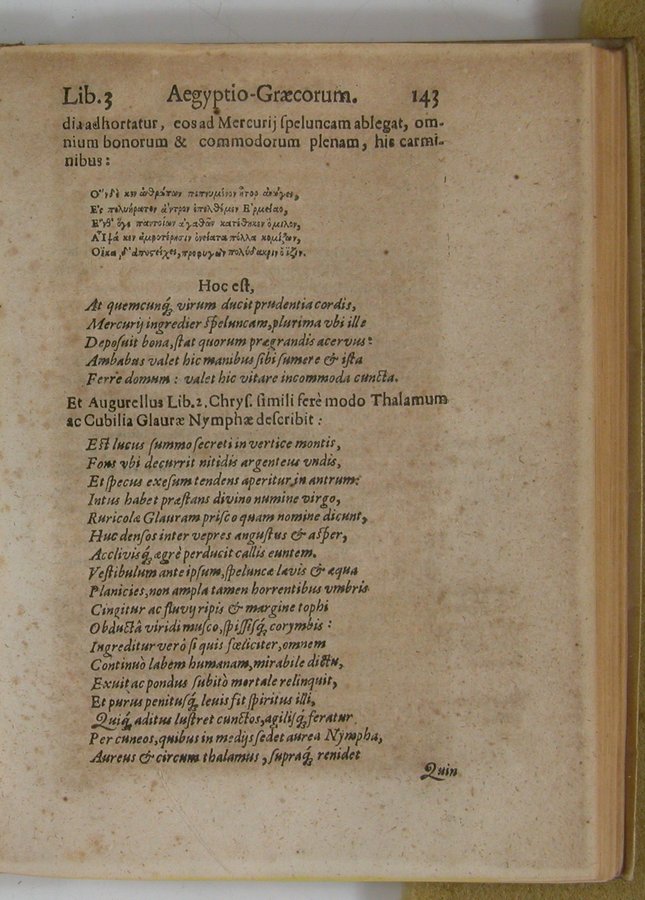 Lib. 3 Aegyptio-Græcorum. 143
dia adhortatur, eos ad Mercurij ſpeluncam ablegat, om-
nium bonorum & commodorum plenam, his carmi-
nibus:
Ὃν δὲ κεν ἀνθρώπων πεπνυμένον ἦτορ ἀνώγει,
Ἐς πολυήρατον ἄντρον ἐπελθέμεν Ἑρμείαο,
Ἔνθ' ὅγε παντοίων ἀγαθῶν κατέθηκεν ὅμιλον,
Αἶψά κεν ἀμφοτέρῃσιν ὀνείατα πολλὰ κομίζων,
Οἴκαδ' ἀποστείχει, προφυγὼν πολύδακριν ὀϊζύν.
Hoc eſt,
At quemcunq́; virum ducit prudentia cordis,
Mercurij ingredier ſpeluncam, plurima vbi ille
Depoſuit bona, ſtat quorum prægrandis acervus:
Ambabus valet hic manibus ſibi ſumere & iſta
Ferre domum: valet hic vitare incommoda cuncta.
Et Augurellus Lib. 2. Chryſ. ſimili ferè modo Thalamum
ac Cubilia Glauræ Nymphæ deſcribit:
Eſt lucus ſummo ſecreti in vertice montis,
Fons vbi decurrit nitidis argenteus vndis,
Et ſpecus exeſum tendens aperitur in antrum:
Intus habet præſtans divino numine virgo,
Ruricolæ Glauram priſco quam nomine dicunt,
Huc denſos inter vepres anguſtus & aſper,
Acclivisq́; ægrè perducit callis euntem.
Veſtibulum ante ipſum, ſpeluncæ lævis & æqua
Planicies, non ampla tamen horrentibus vmbris
Cingitur ac fluvij ripis & margine tophi
Obductâ viridi muſco, ſpiſſiſq́; corymbis:
Ingreditur verò ſi quis fœliciter, omnem
Continuò labem humanam, mirabile dictu,
Exuit ac pondus ſubitò mortale relinquit,
Et purus penitusq́; levis fit ſpiritus illi,
Quiq́; aditus luſtret cunctos, agilisq́; feratur
Per cuneos, quibus in medijs ſedet aurea Nympha,
Aureus & circum thalamus, ſupraq́; renidet
Quin